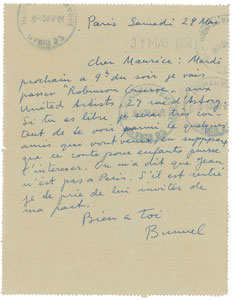 Paris Samedi 29 Mai
31 MAI 1954
Cher Maurice : Mardi
prochain a 9h du soir je vais
passer "Robinson Crusoe" aux
United Artists 27 rue d'Artois.
Si tu es libre je serai très con-
tent de te voir parmi le quelques
amies qui vont venir, en supposant
que ce conte pour enfants puisse
t'interesser. On m'a dit que Jean
n'est pas a Paris. S'il est rentré
je te prie de lui inviter de
ma part.
Bien a toi
Bunuel